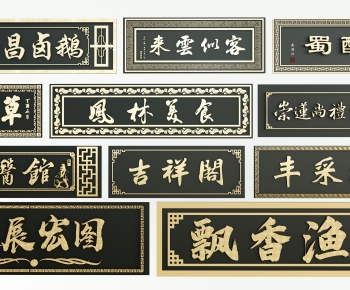 昌卤鹅
客似雲来
蜀
草
風林美食
崇蓮尚禮
醫館
吉祥閣
丰采
展宏图
飘香渔